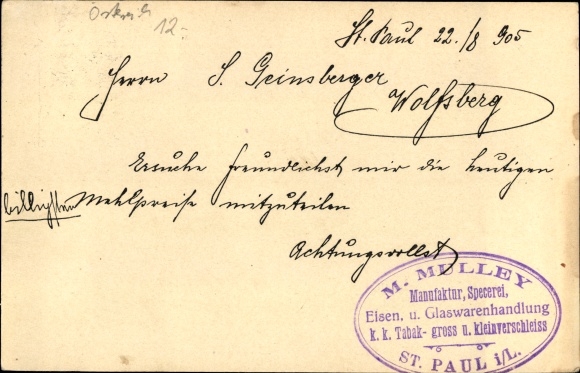 Östreich
12.-
St. Paul 22./8 905
Herrn S. Geinsberger
Wolfsberg
Ersuche freundlichst mir die heutigen
billigsten Mehlpreise mitzuteilen
Achtungsvollst
M. MULLEY
Manufaktur, Specerei,
Eisen, u. Glaswarenhandlung
k. k. Tabak- gross u. kleinverschleiss
ST. PAUL i/L.